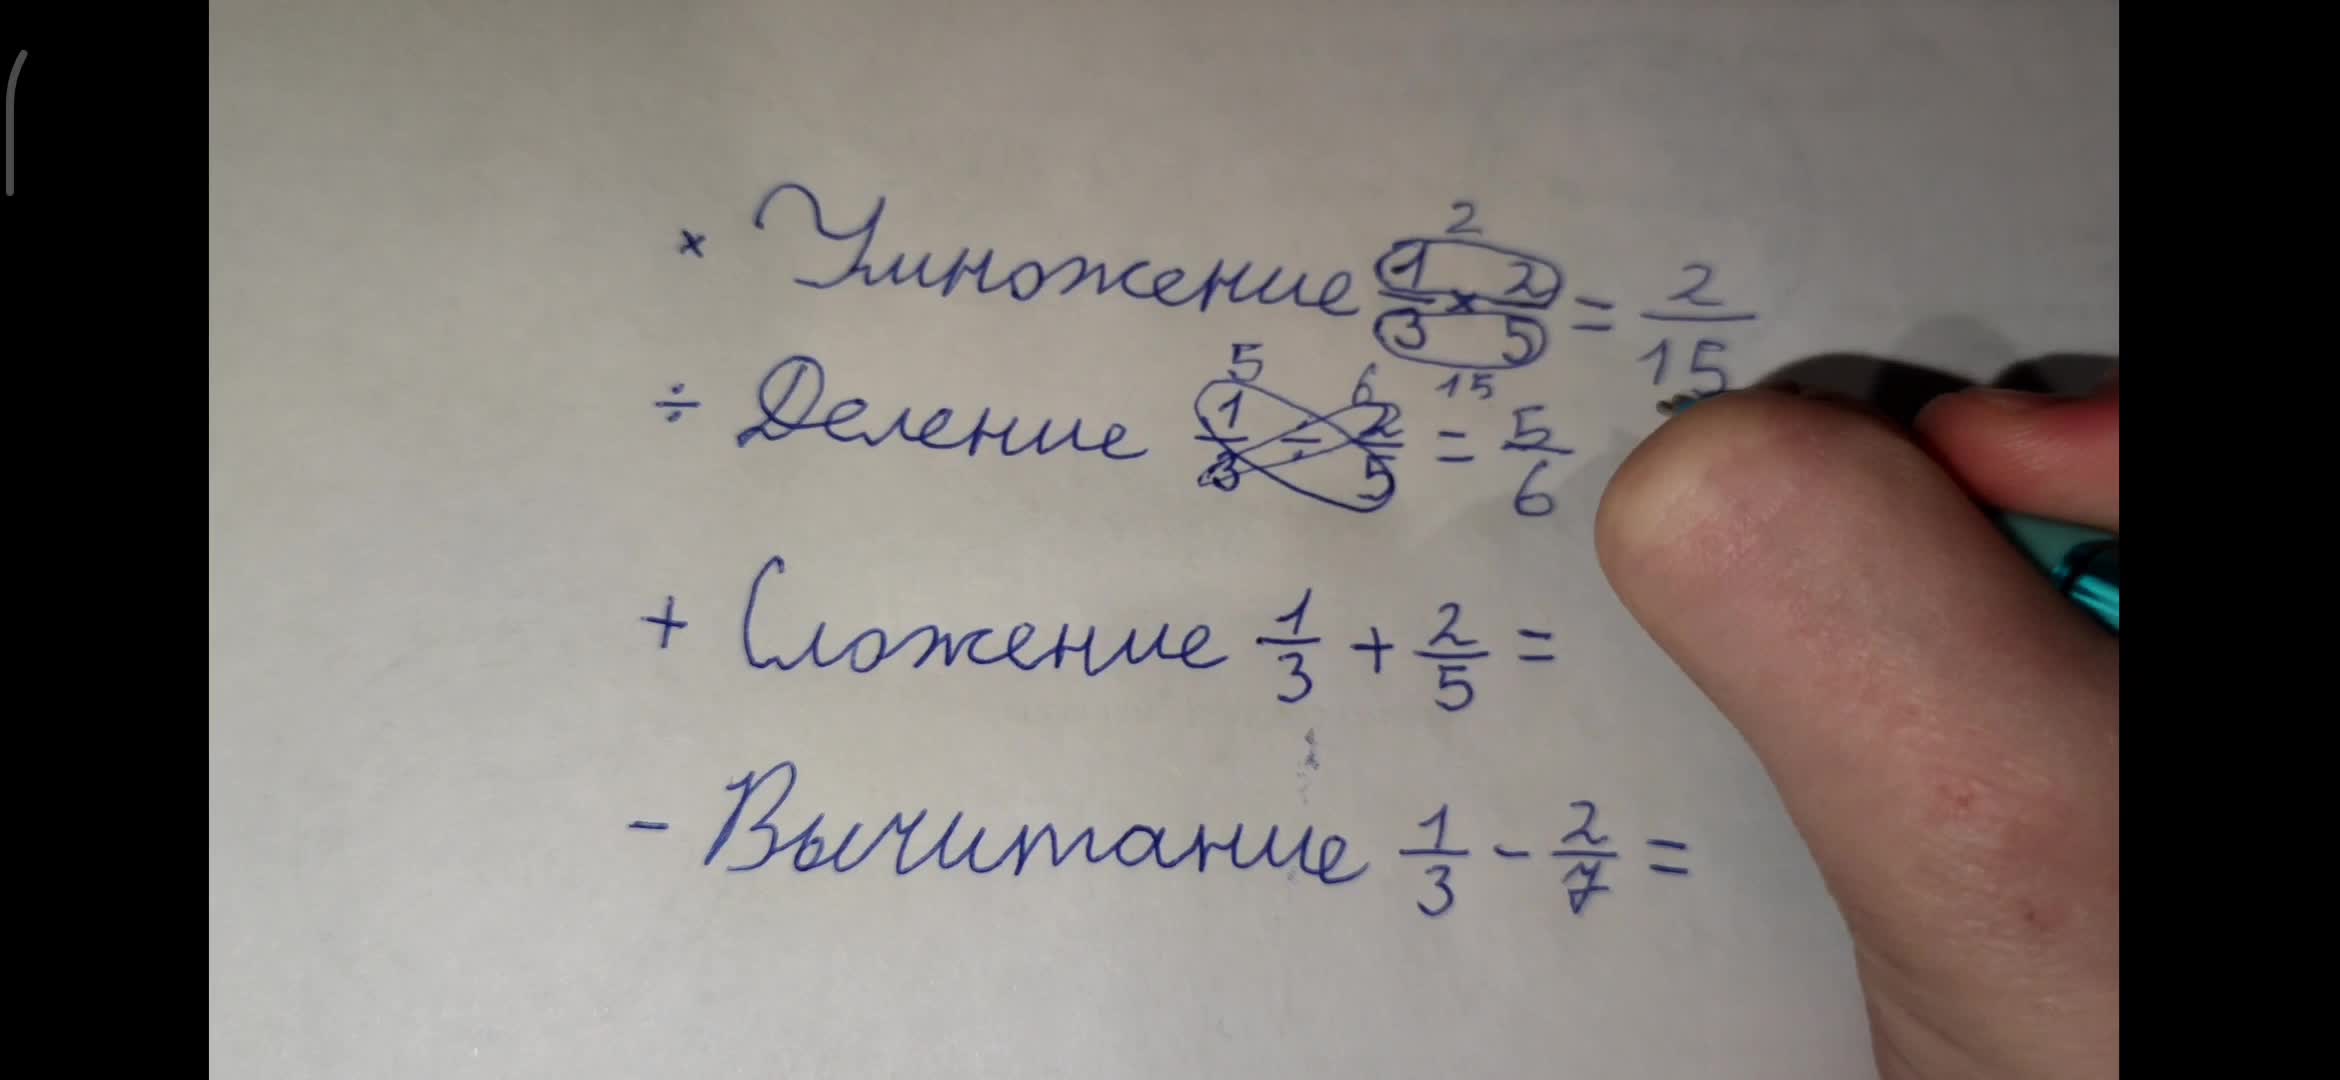 2
× Умножение 1/3 × 2/5 = 2/15
15
5 6
÷ Деление 1/3 ÷ 2/5 = 5/6
+ Сложение 1/3 + 2/5 =
- Вычитание 1/3 - 2/7 =